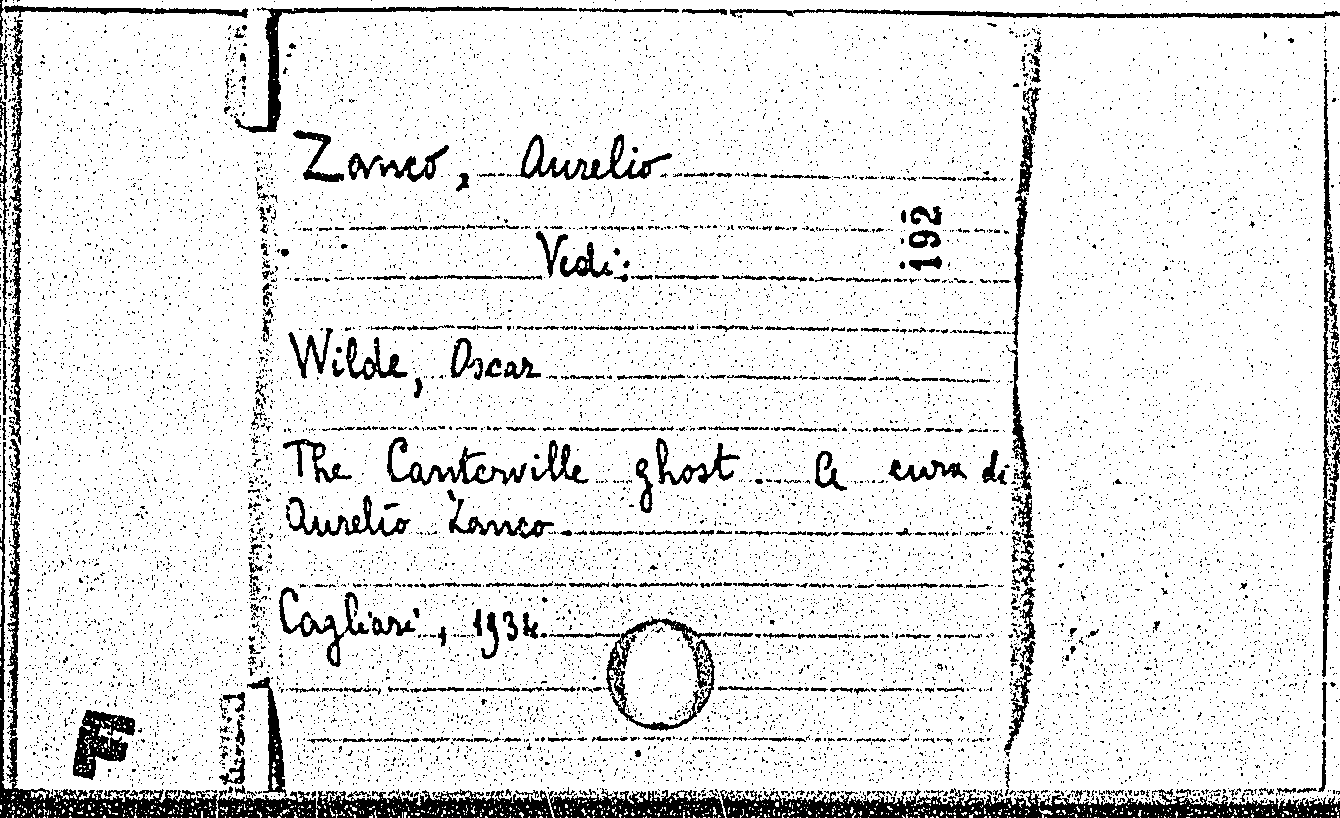 Zanco, Aurelio
192
Vedi:
Wilde, Oscar
The Canterville ghost. A cura di
Aurelio Zanco.
Cagliari, 1934.
F